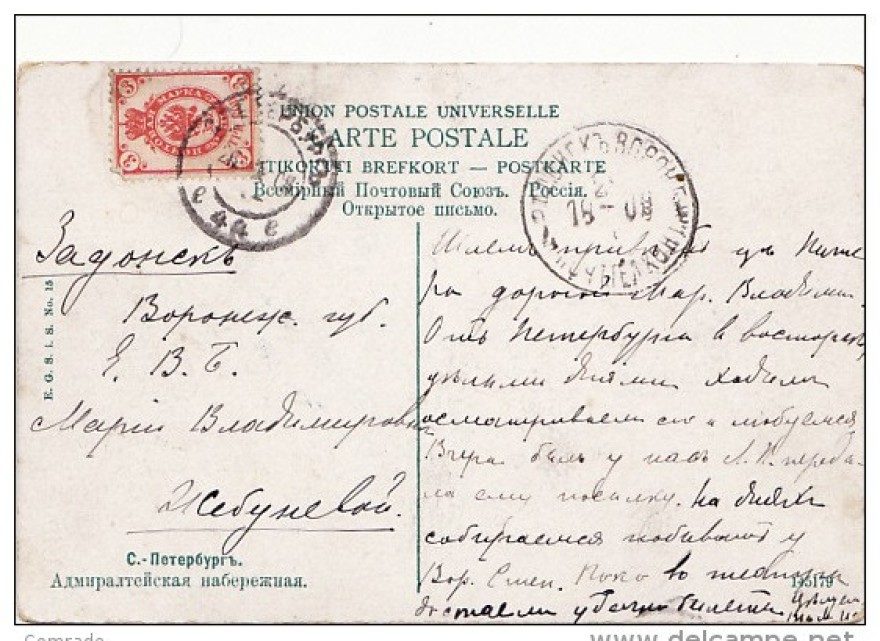 UNION POSTALE UNIVERSELLE
CARTE POSTALE
BREFKORT — POSTKARTE
Всемірный Почтовый Союзъ. Россія.
Открытое письмо.
3 3
МАРКА
3 3
ВОРОНЕЖ
E. G. S. i. S. No. 15
Задонскъ
Воронеж. губ.
Е. В. Б.
Маріи Владимировнѣ
Жебуневой.
С.-Петербургъ.
Адмиралтейская набережная.
Шлемъ привѣтъ
дорогой Мар. Владим.
Отъ Петербурга в восторгѣ,
цѣлыми днями ходимъ
осматриваемъ его и любуемся
Вчера былъ у насъ Л. И. переда-
ла ему посылку. На дняхъ
собираемся побывать у
Вор. Степ. Пока во театры
достали билеты
145179
Comrade
www.delcampe.net